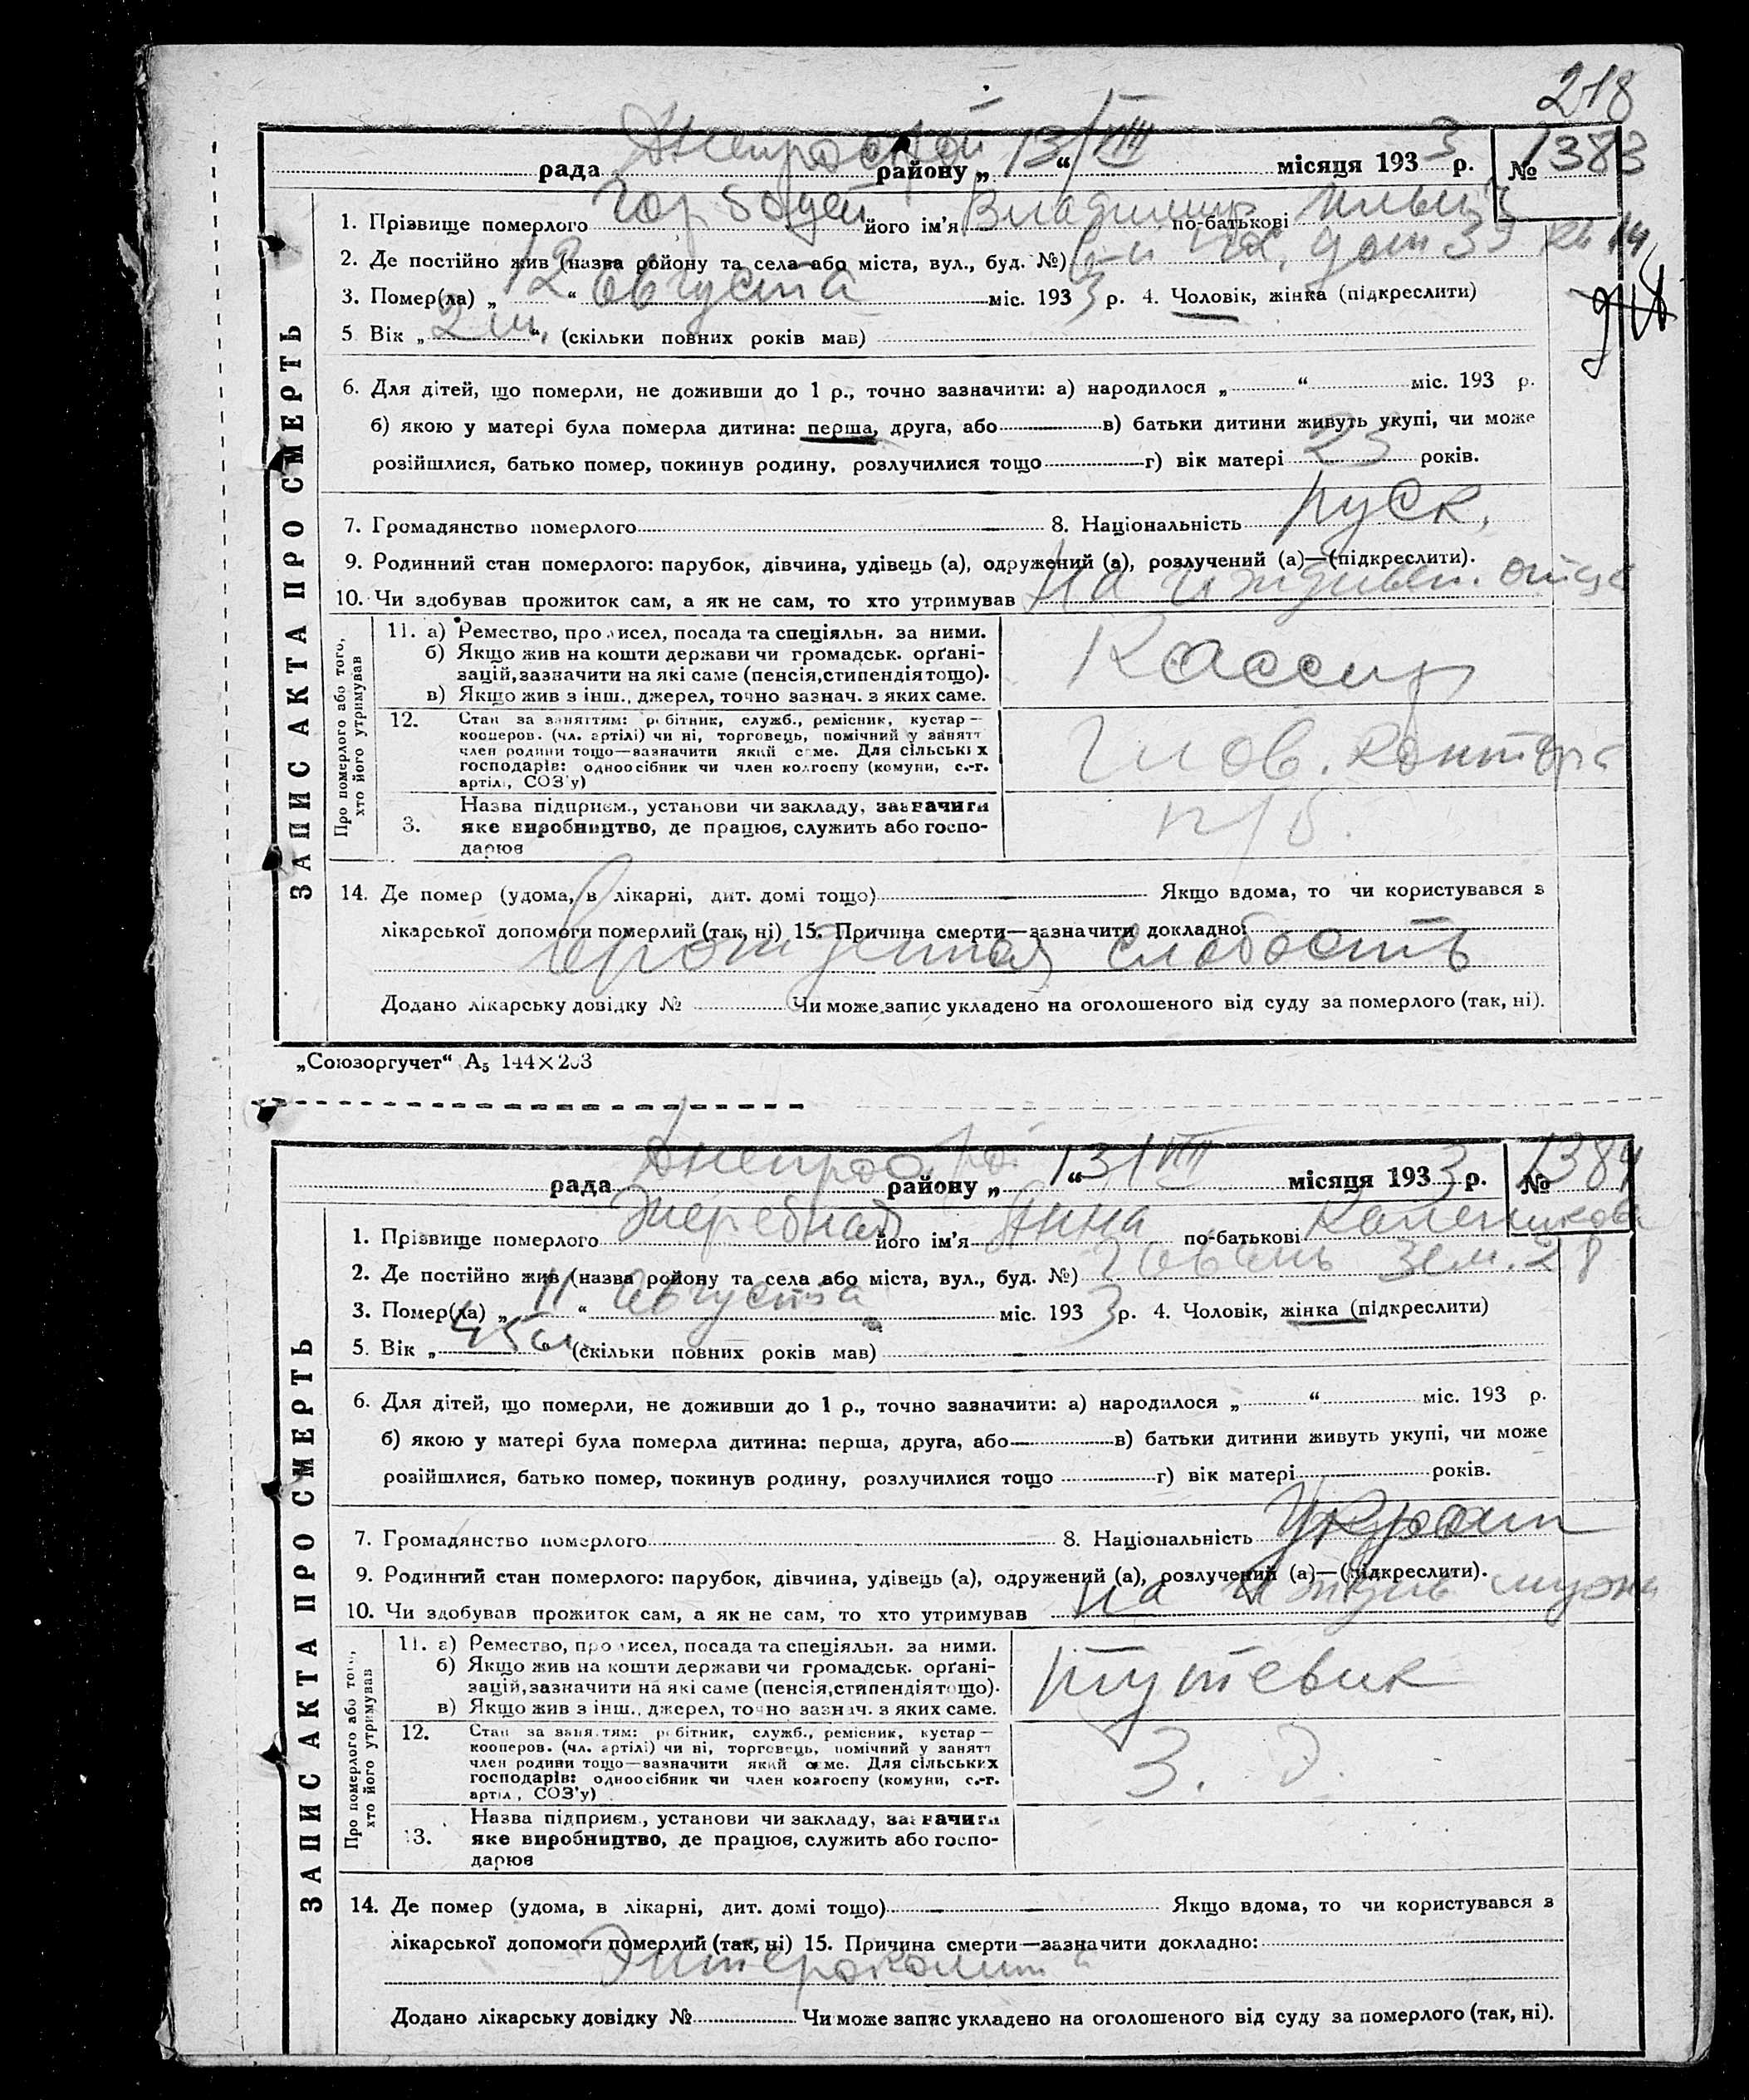 218
рада Днепрострой району „ 13/VIII “ місяця 1933 р. № 1383
ЗАПИС АКТА ПРО СМЕРТЬ
1. Прізвище померлого його ім’я Владимир по-батькові Ильич
2. Де постійно жив (назва ройону та села або міста, вул., буд. №) 6-й дом 39 кв 14
3. Помер(ла) „ 12 “ августа міс. 1933 р. 4. Чоловік, жінка (підкреслити)
5 Вік „ 2 м. “, (скільки повних років мав)
6. Для дітей, що померли, не доживши до 1 р., точно зазначити: а) народилося „ “ міс. 193 р.
б) якою у матері була померла дитина: перша, друга, або в) батьки дитини живуть укупі, чи може
розійшлися, батько помер, покинув родину, розлучилися тощо г) вік матері 23 років.
7. Громадянство померлого 8. Національність руск.
9. Родинний стан померлого: парубок, дівчина, удівець (а), одружений (а), розлучений (а)—(підкреслити).
10. Чи здобував прожиток сам, а як не сам, то хто утримував На иждивен. отца
Про померлого або того, хто його утримував
11. а) Ремество, промисел, посада та спеціяльн. за ними.
б) Якщо жив на кошти держави чи громадськ. орґані-
зацій, зазначити на які саме (пенсія, стипендія тощо).
в) Якщо жив з інш., джерел, точно зазнач. з яких саме.
Кассир
12. Стан за заняттям: робітник, служб., ремісник, кустар—
кооперов. (чл. артілі) чи ні, торговець, помічний у занятт
член родини тощо—зазначити який саме. Для сільських
господарів: одноосібник чи член колгоспу (комуни, с.-г.
артілі, СОЗ’у)
Глов. контора
3. Назва підприєм., установи чи закладу, зазначити
яке виробництво, де працює, служить або госпо-
дарює
14. Де помер (удома, в лікарні, дит. домі тощо) Якщо вдома, то чи користувався з
лікарської допомоги померлий (так, ні) 15. Причина смерти—зазначити докладно:
Врожденная слабость
Додано лікарську довідку № Чи може запис укладено на оголошеного від суду за померлого (так, ні).
„Союзоргучет“ А5 144×203
рада Днепрострой району „ 13/VIII “ місяця 1933 р. № 1384
ЗАПИС АКТА ПРО СМЕРТЬ
1. Прізвище померлого Жеребная його ім’я Анна по-батькові
2. Де постійно жив (назва ройону та села або міста, вул., буд. №) зем. 28
3. Помер(ла) „ 11 “ августа міс. 1933 р. 4. Чоловік, жінка (підкреслити)
5. Вік „ 45 л. “ (скільки повних років мав)
6. Для дітей, що померли, не доживши до 1 р., точно зазначити: а) народилося „ “ міс. 193 р.
б) якою у матері була померла дитина: перша, друга, або в) батьки дитини живуть укупі, чи може
розійшлися, батько помер, покинув родину, розлучилися тощо г) вік матері років.
7. Громадянство померлого 8. Національність Украин
9. Родинний стан померлого: парубок, дівчина, удівець (а), одружений (а), розлучений (а)—(підкреслити).
10. Чи здобував прожиток сам, а як не сам, то хто утримував На иждив мужа
Про померлого або того, хто його утримував
11. а) Ремество, промисел, посада та спеціяльн. за ними.
б) Якщо жив на кошти держави чи громадськ. орґані-
зацій, зазначити на які саме (пенсія, стипендія тощо).
в) Якщо жив з інш., джерел, точно зазнач. з яких саме.
путевик
12. Стан за заняттям: робітник, служб., ремісник, кустар—
кооперов. (чл. артілі) чи ні, торговець, помічний у занятт
член родини тощо—зазначити який саме. Для сільських
господарів: одноосібник чи член колгоспу (комуни, с.-г.
артіл, СОЗ’у)
З. Э.
13. Назва підприєм., установи чи закладу, зазначити
яке виробництво, де працює, служить або госпо-
дарює
14. Де помер (удома, в лікарні, дит. домі тощо) Якщо вдома, то чи користувався з
лікарської допомоги померлий (так, ні) 15. Причина смерти—зазначити докладно:
Энтероколит
Додано лікарську довідку № Чи може запис укладено на оголошеного від суду за померлого (так, ні).